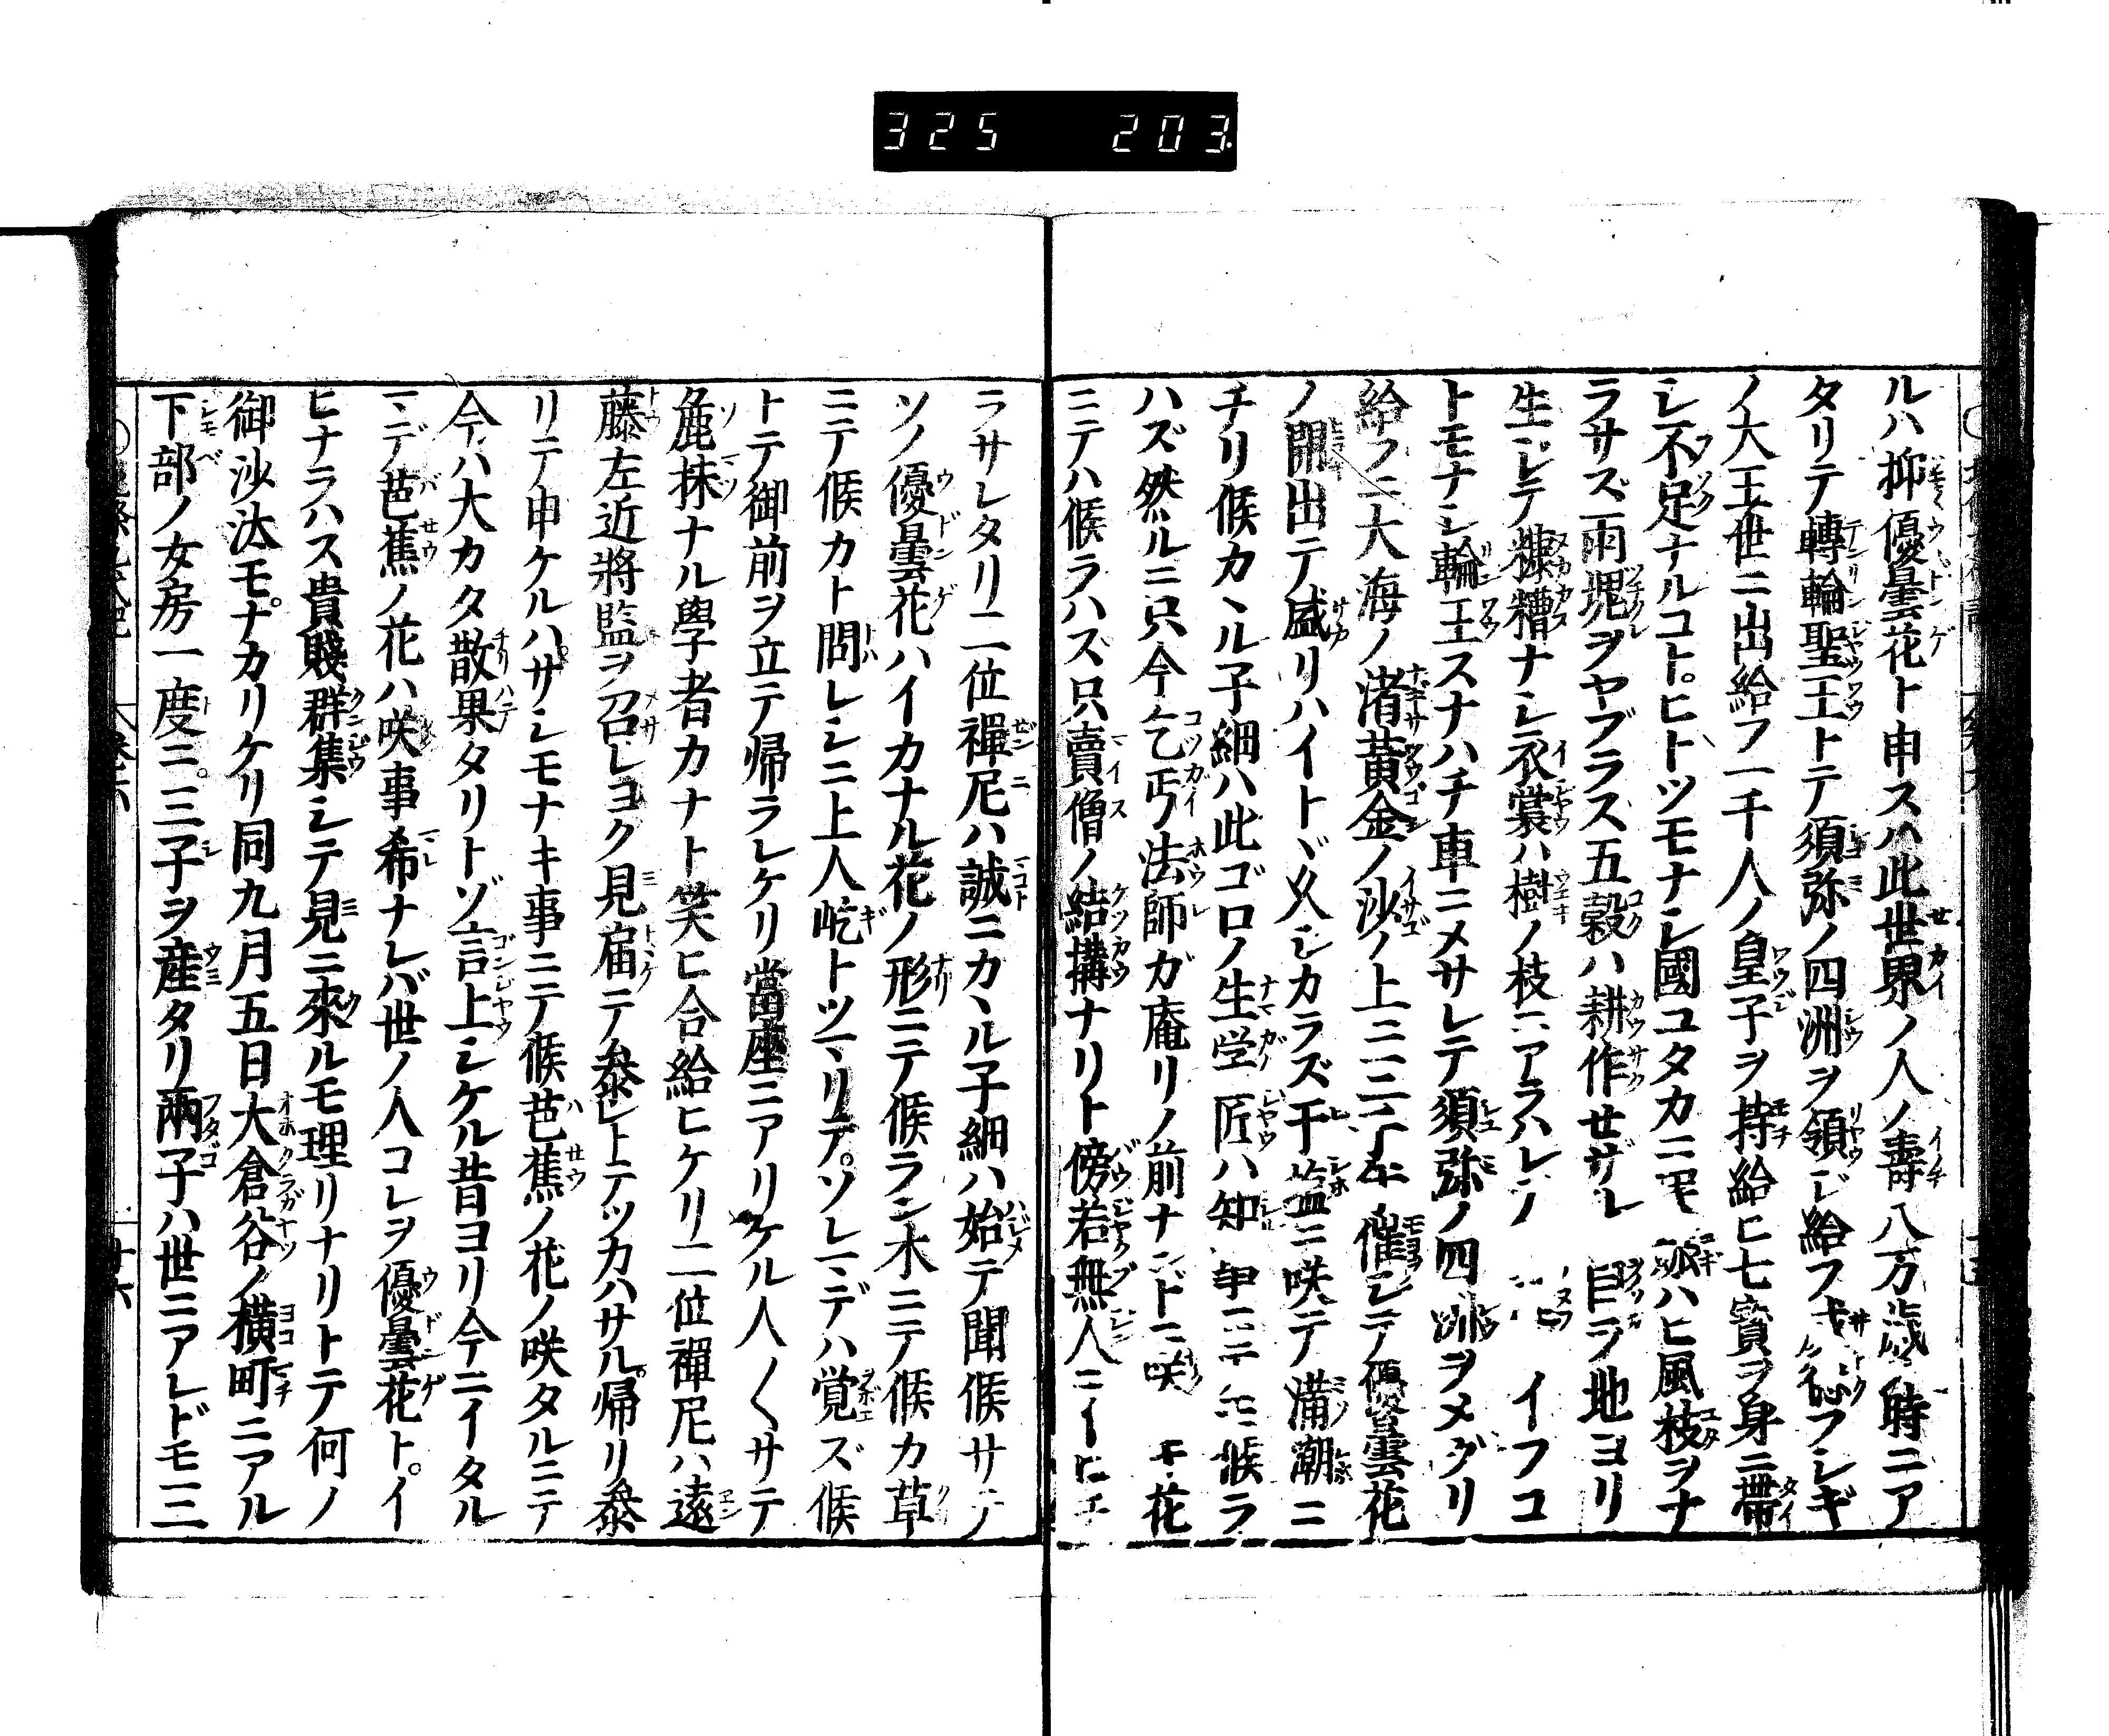 325 203
ルハ抑優曇花ト申スハ此世界ノ人ノ壽八万歳ノ時ニア
タリテ轉輪聖王トテ須弥ノ四洲ヲ領ジ給フ
フシギ
ノ大王世ニ出給フ一千人ノ皇子ヲ持給ヒ七寳ヲ身ニ帶
シ不足ナルコトヒトツモナシ國ユタカニ
ハヒ風枝ヲナ
ラサズ雨塊ヲヤブラス五穀ハ耕作セザレ
地ヨリ
生シテ糠糟ナシ衣裳ハ樹ノ枝ニアラハレテ
イフコ
トモナシ輪王スナハチ車ニメサレテ須弥ノ四洲ヲメグリ
給フニ大海ノ渚黄金ノ沙ノ上ニ三千年ニ催シテ優曇花
ノ開出テ盛リハイトヾ久シカラズ干塩ニ咲テ満潮ニ
チリ候カヽル子細ハ此ゴロノ生学匠ハ知
候ラ
ハズ然ルニ只今乞丐法師ガ庵リノ前ナンドニ咲
花
ニテハ候ラハス只賣僧ノ結構ナリト傍若無人ニ
ラサレタリ二位禪尼ハ誠ニカヽル子細ハ始テ聞候サテ
ソノ優曇花ハイカナル花ノ形ニテ候ラン木ニテ候カ草
ニテ候カト問レシニ上人屹トツマリテソレマデハ覚ズ候
トテ御前ヲ立テ帰ラレケリ當座ニアリケル人〱サテ
麁抹ナル學者カナト笑ヒ合給ヒケリ二位禪尼ハ遠
藤左近將監ヲ召レヨク見届テ参レトテツカハサル帰リ参
リテ申ケルハサシモナキ事ニテ候芭蕉ノ花ノ咲タルニテ
今ハ大カタ散果タリトゾ言上シケル昔ヨリ今ニイタル
マデ芭蕉ノ花ハ咲事希ナレバ世ノ人コレヲ優曇花トイ
ヒナラハス貴賤群集シテ見ニ來ルモ理リナリトテ何ノ
御沙汰モナカリケリ同九月五日大倉谷ノ横町ニアル
下部ノ女房一度ニ三子ヲ産タリ兩子ハ世ニアレドモ三